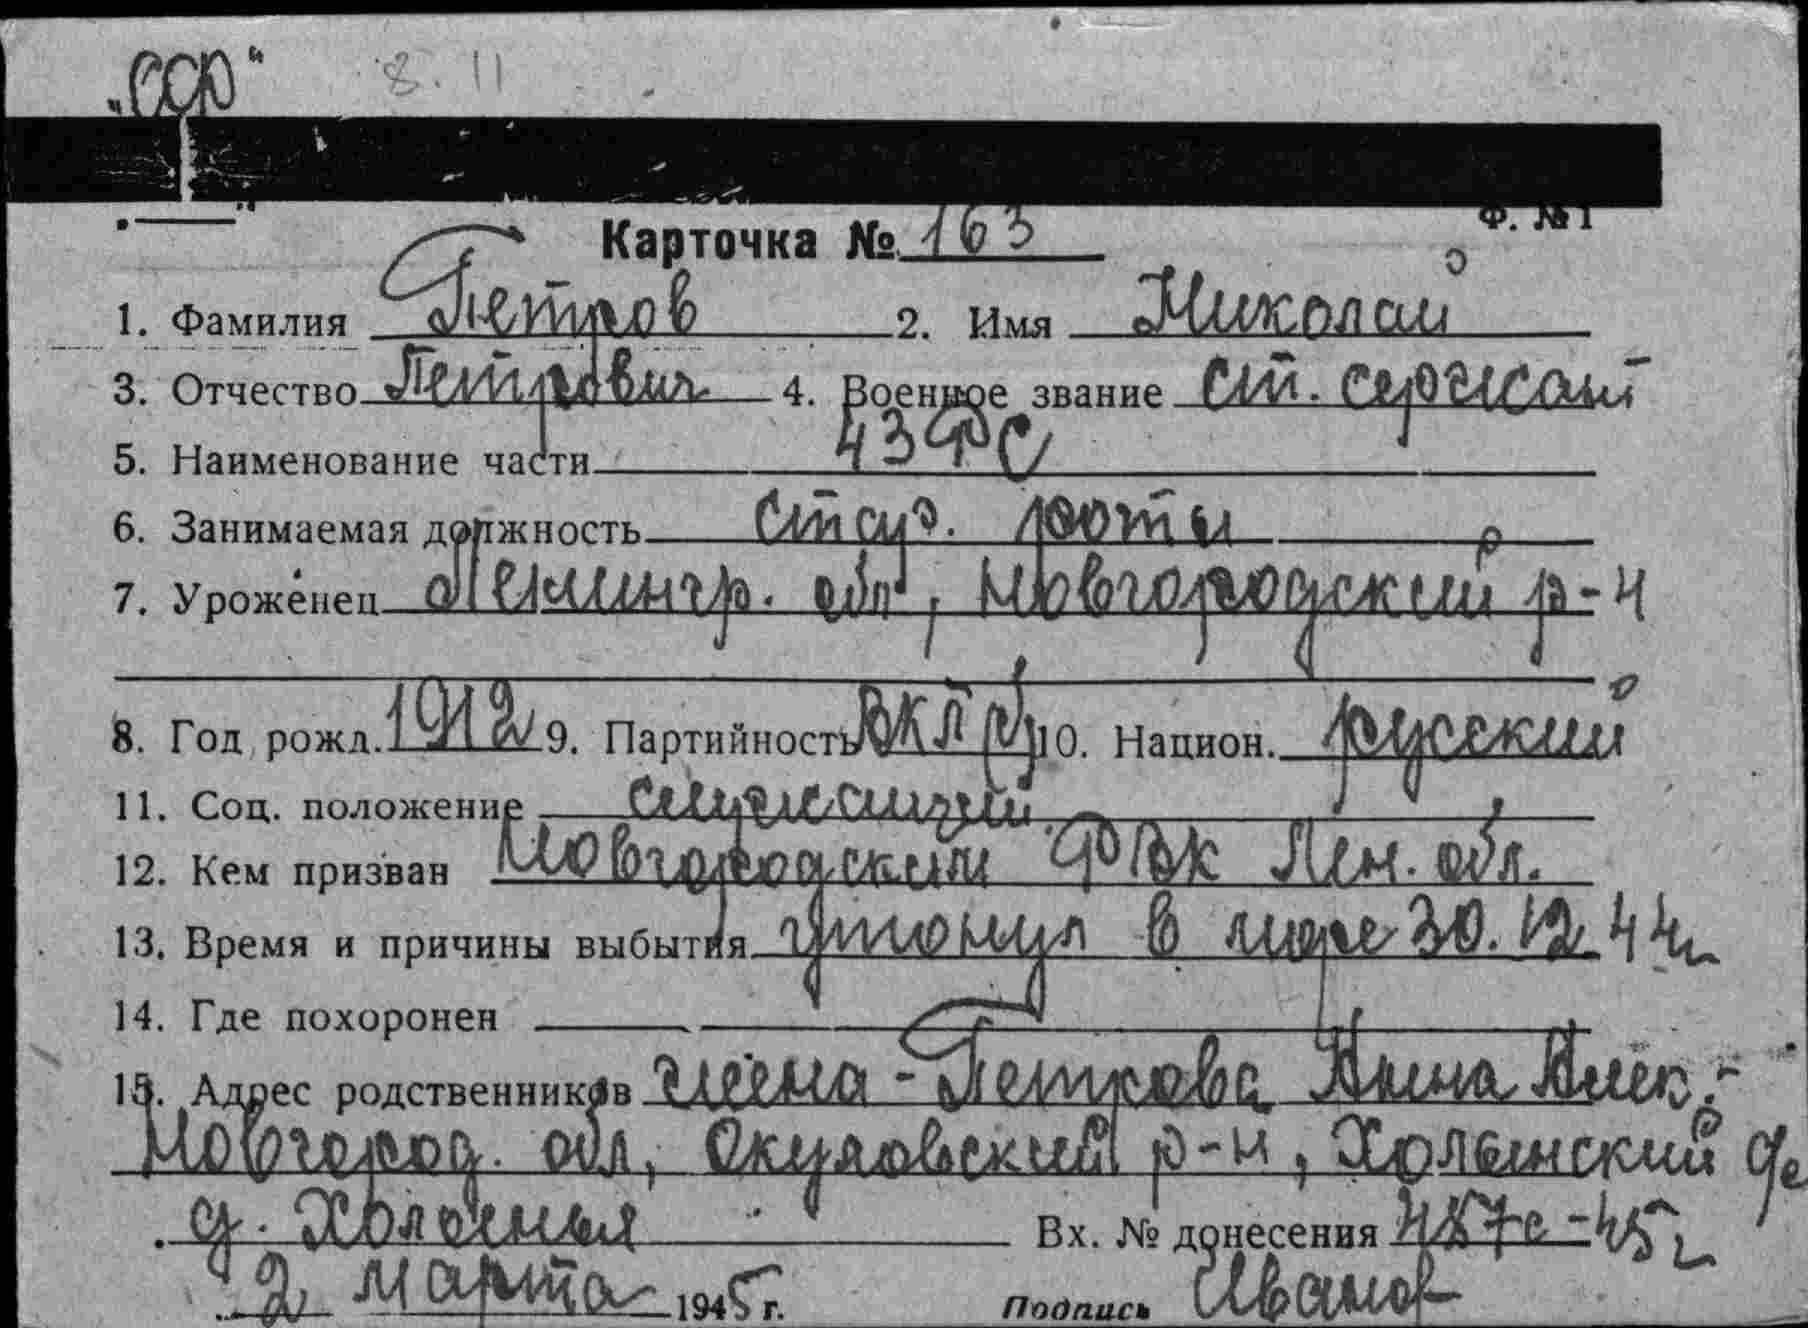 „ССР“ 8.11
Ф. № 1
Карточка № 163
1. Фамилия Петров 2. Имя Николай
3. Отчество Петрович 4. Военное звание ст. сержант
5. Наименование части
6. Занимаемая должность стар. роты
7. Уроженец Ленингр. обл, Новгородский р-н
8. Год рожд. 1912 9. Партийность ВКП(б) 10. Национ. русский
11. Соц. положение служащий
12. Кем призван Новгородским РВК Лен. обл.
13. Время и причины выбытия утонул в море 30.12.44г
14. Где похоронен
15. Адрес родственников жена - Петрова Анна Алек.-
Новгород. обл, Окуловский р-н, Холынский
д. Вх. № донесения 487с-45г
2 марта 1945 г. Подпись Иванов